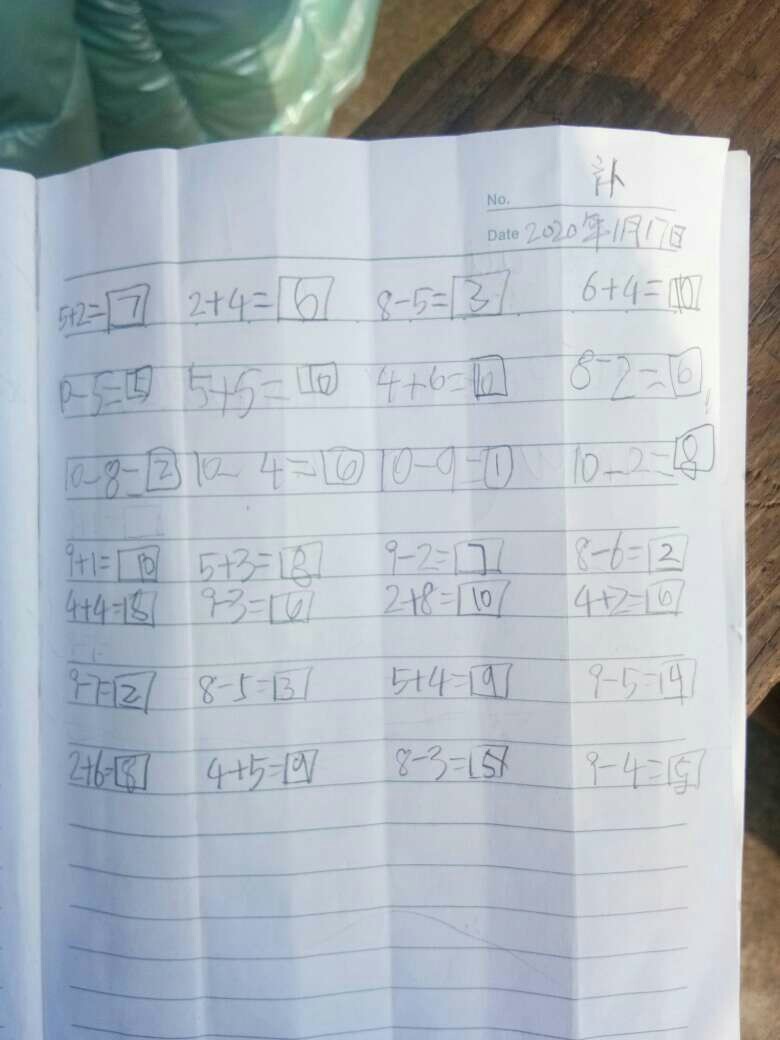 No. 补
Date 2020年1月17日
5+2=7 2+4=6 8-5=3 6+4=10
0-5=5 5+5=10 4+6=10 8-2=6
10-8=2 10-4=6 10-9=1 10-2=8
9+1=10 5+3=8 9-2=7 8-6=2
4+4=8 9-3=6 2+8=10 4+2=6
9-7=2 8-5=3 5+4=9 9-5=4
2+6=8 4+5=9 8-3=5 9-4=5